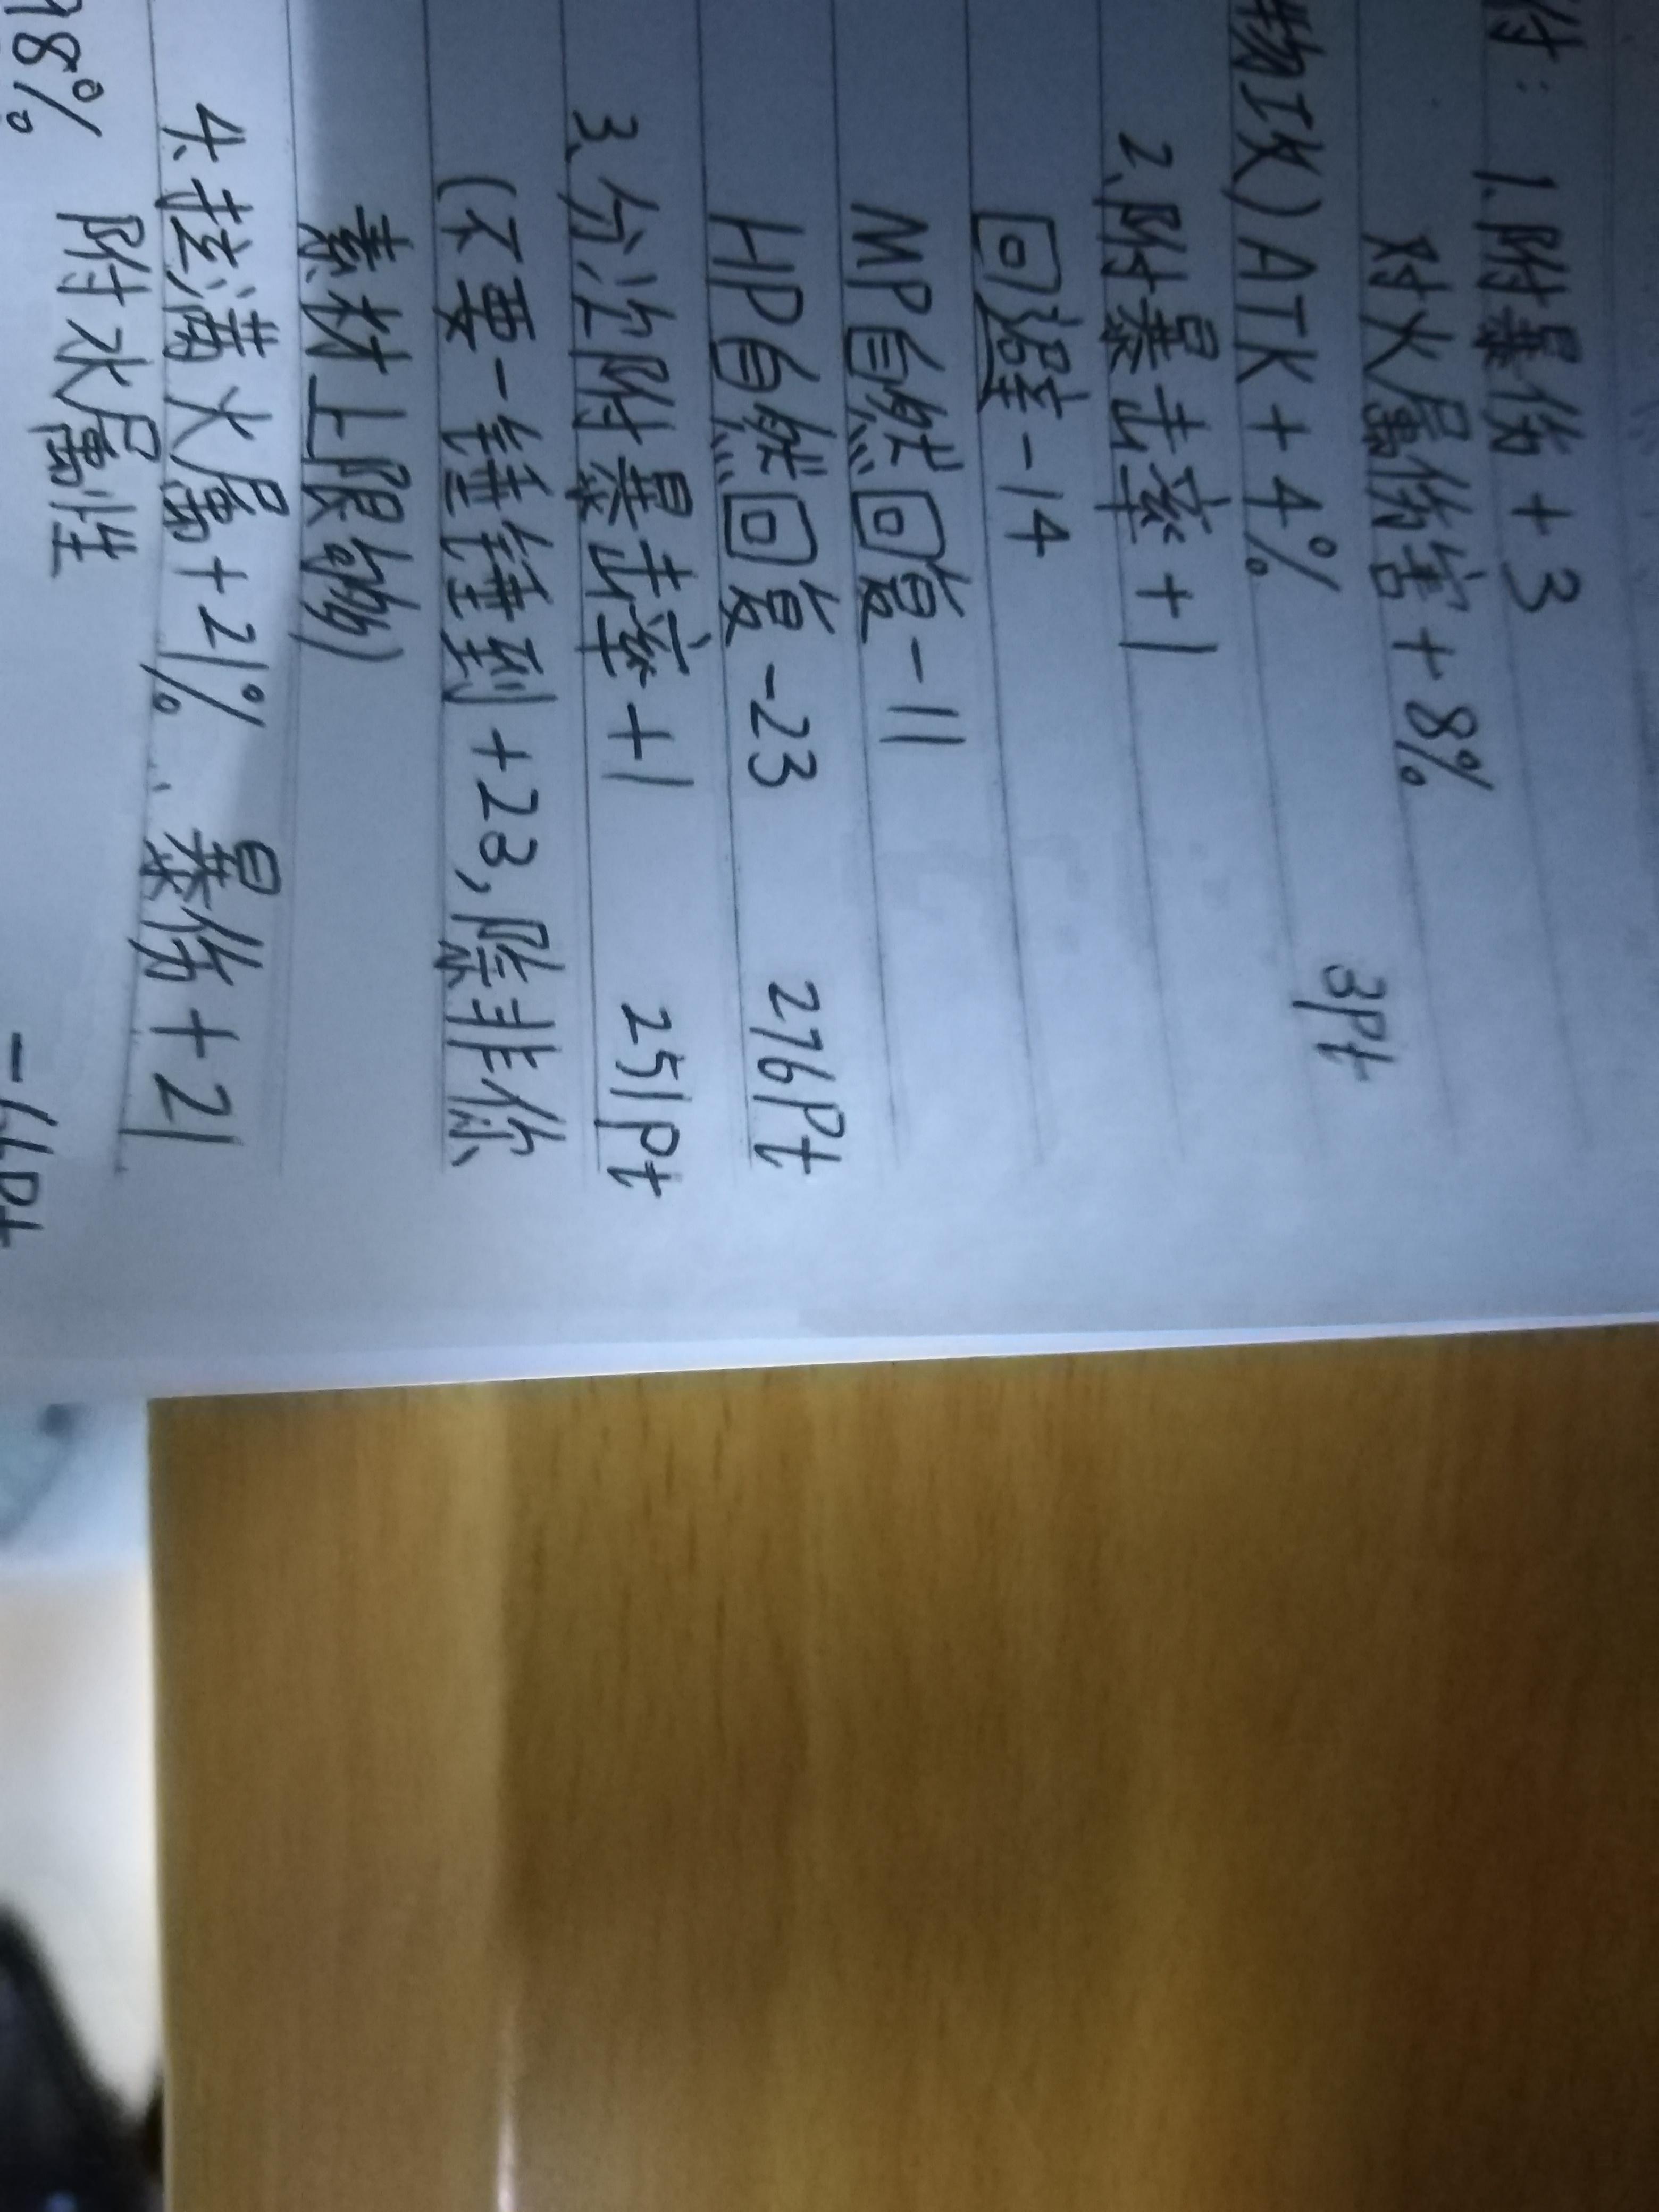 附：1.附暴伤+3
对火属伤害+8%
物攻)ATK+4% 3Pt
2.附暴击率+1
回避-14
MP自然回复-11
HP自然回复-23 276Pt
3.分次附暴击率+1 251Pt
(不要一锤锤到+23,除非你
素材上限够)
4.拉满火属+21%、暴伤+21
附水属性
98%